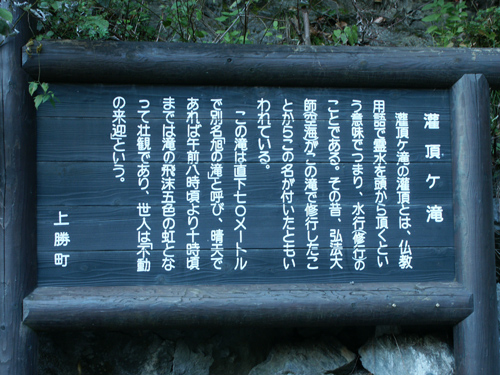 灌頂ケ滝
灌頂ケ滝の灌頂とは、仏教
用語で霊水を頭から頂くとい
う意味でつまり、水行修行の
ことである。その昔、弘法大
師空海がこの滝で修行したこ
とからこの名が付いたともい
われている。
この滝は直下七〇メートル
で別名「旭の滝」と呼び、晴天で
あれば午前八時頃より十時頃
までは滝の飛沫五色の虹とな
って壮観であり、世人は「不動
の来迎」という。
上勝町